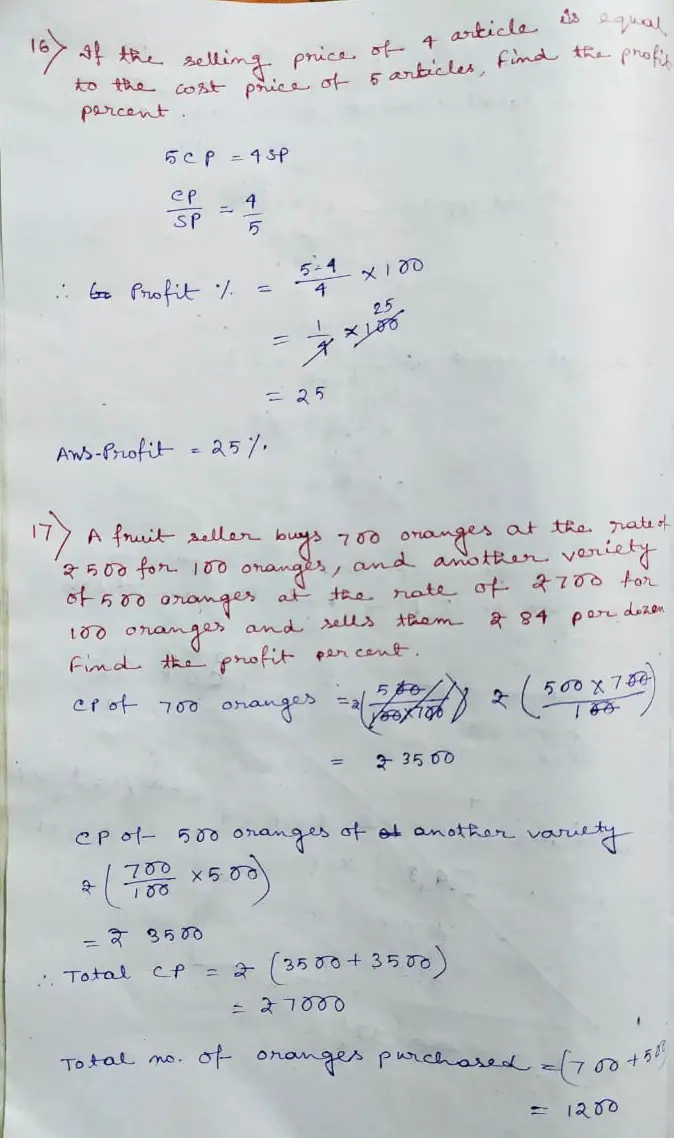 16) If the selling price of 4 article is equal
to the cost price of 5 articles, Find the profit
percent.
5CP = 4SP
CP/SP = 4/5
∴ Profit % = 5-4/4 × 100
= 1/4 × 100 25
= 25
Ans-Profit = 25%.
17) A fruit seller buys 700 oranges at the rate of
₹ 500 for 100 oranges, and another veriety
of 500 oranges at the rate of ₹ 700 for
100 oranges and sells them ₹ 84 per dozen
Find the profit percent.
CP of 700 oranges = ₹ (500/100×700) ₹ (500 × 700/100)
= ₹ 3500
CP of 500 oranges of at another variety
₹ (700/100 × 500)
= ₹ 3500
∴ Total CP = ₹ (3500 + 3500)
= ₹ 7000
Total no. of oranges purchased = (700 + 500
= 1200